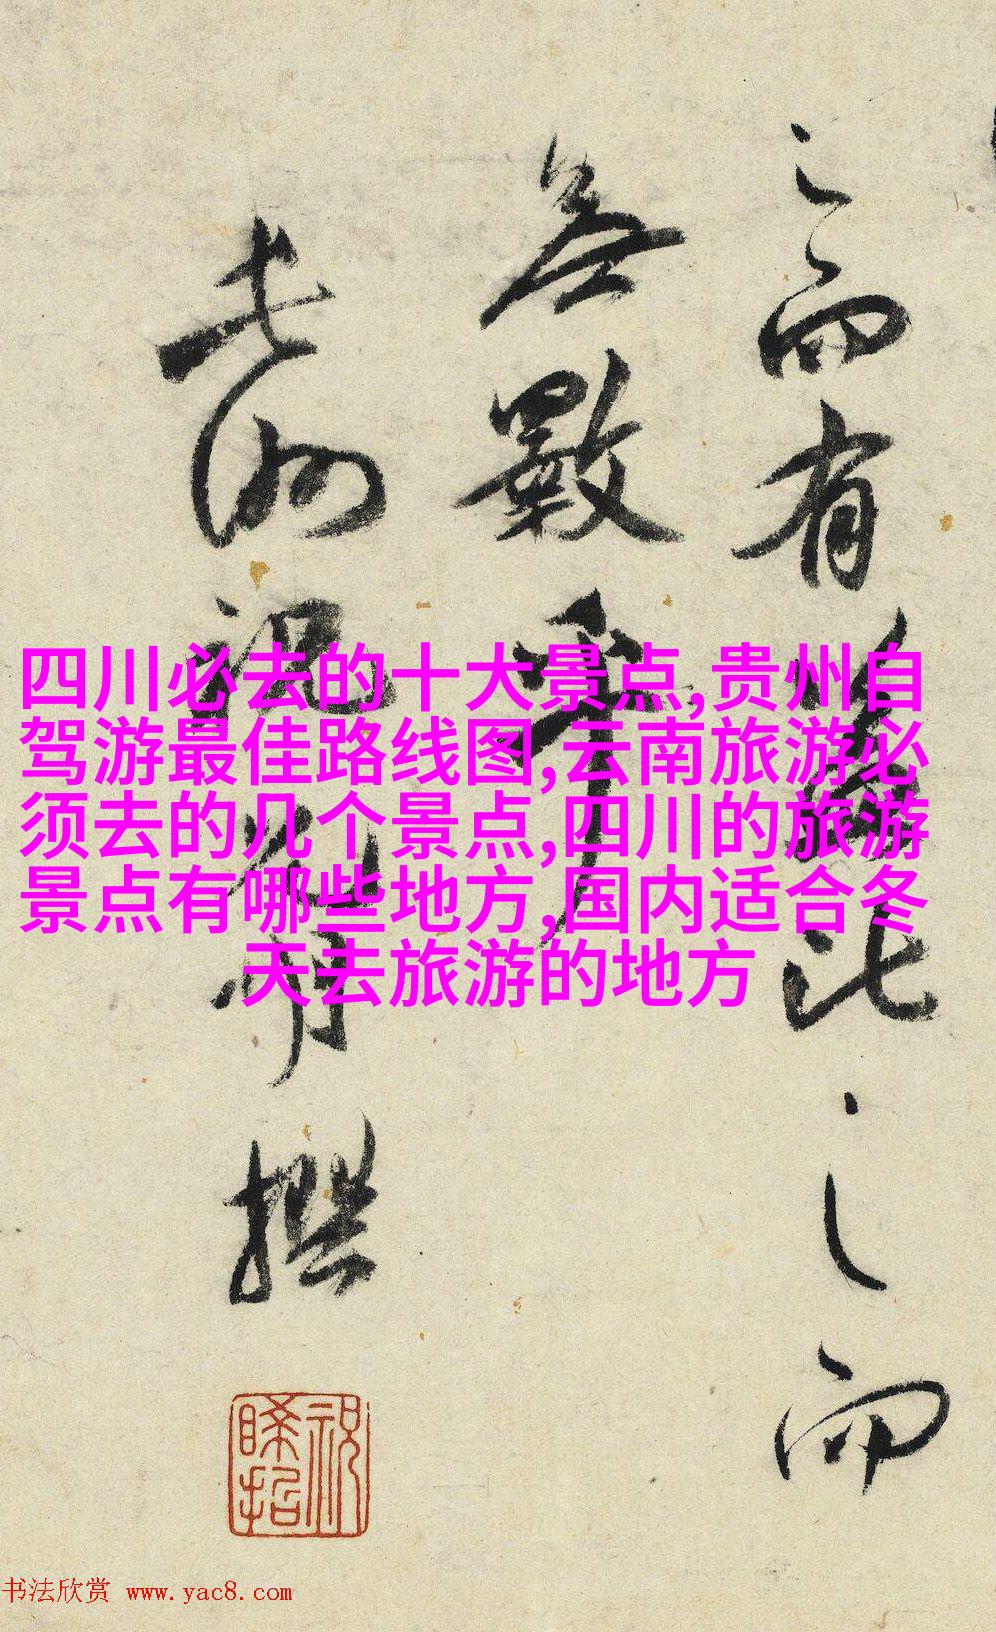 之而有餘比之而
無數乎
長洲祝允明撰
四川必去的十大景点,贵州自
驾游最佳路线图,云南旅游必
须去的几个景点,四川的旅游
景点有哪些地方,国内适合冬
天去旅游的地方
书法欣赏 www.yac8.com